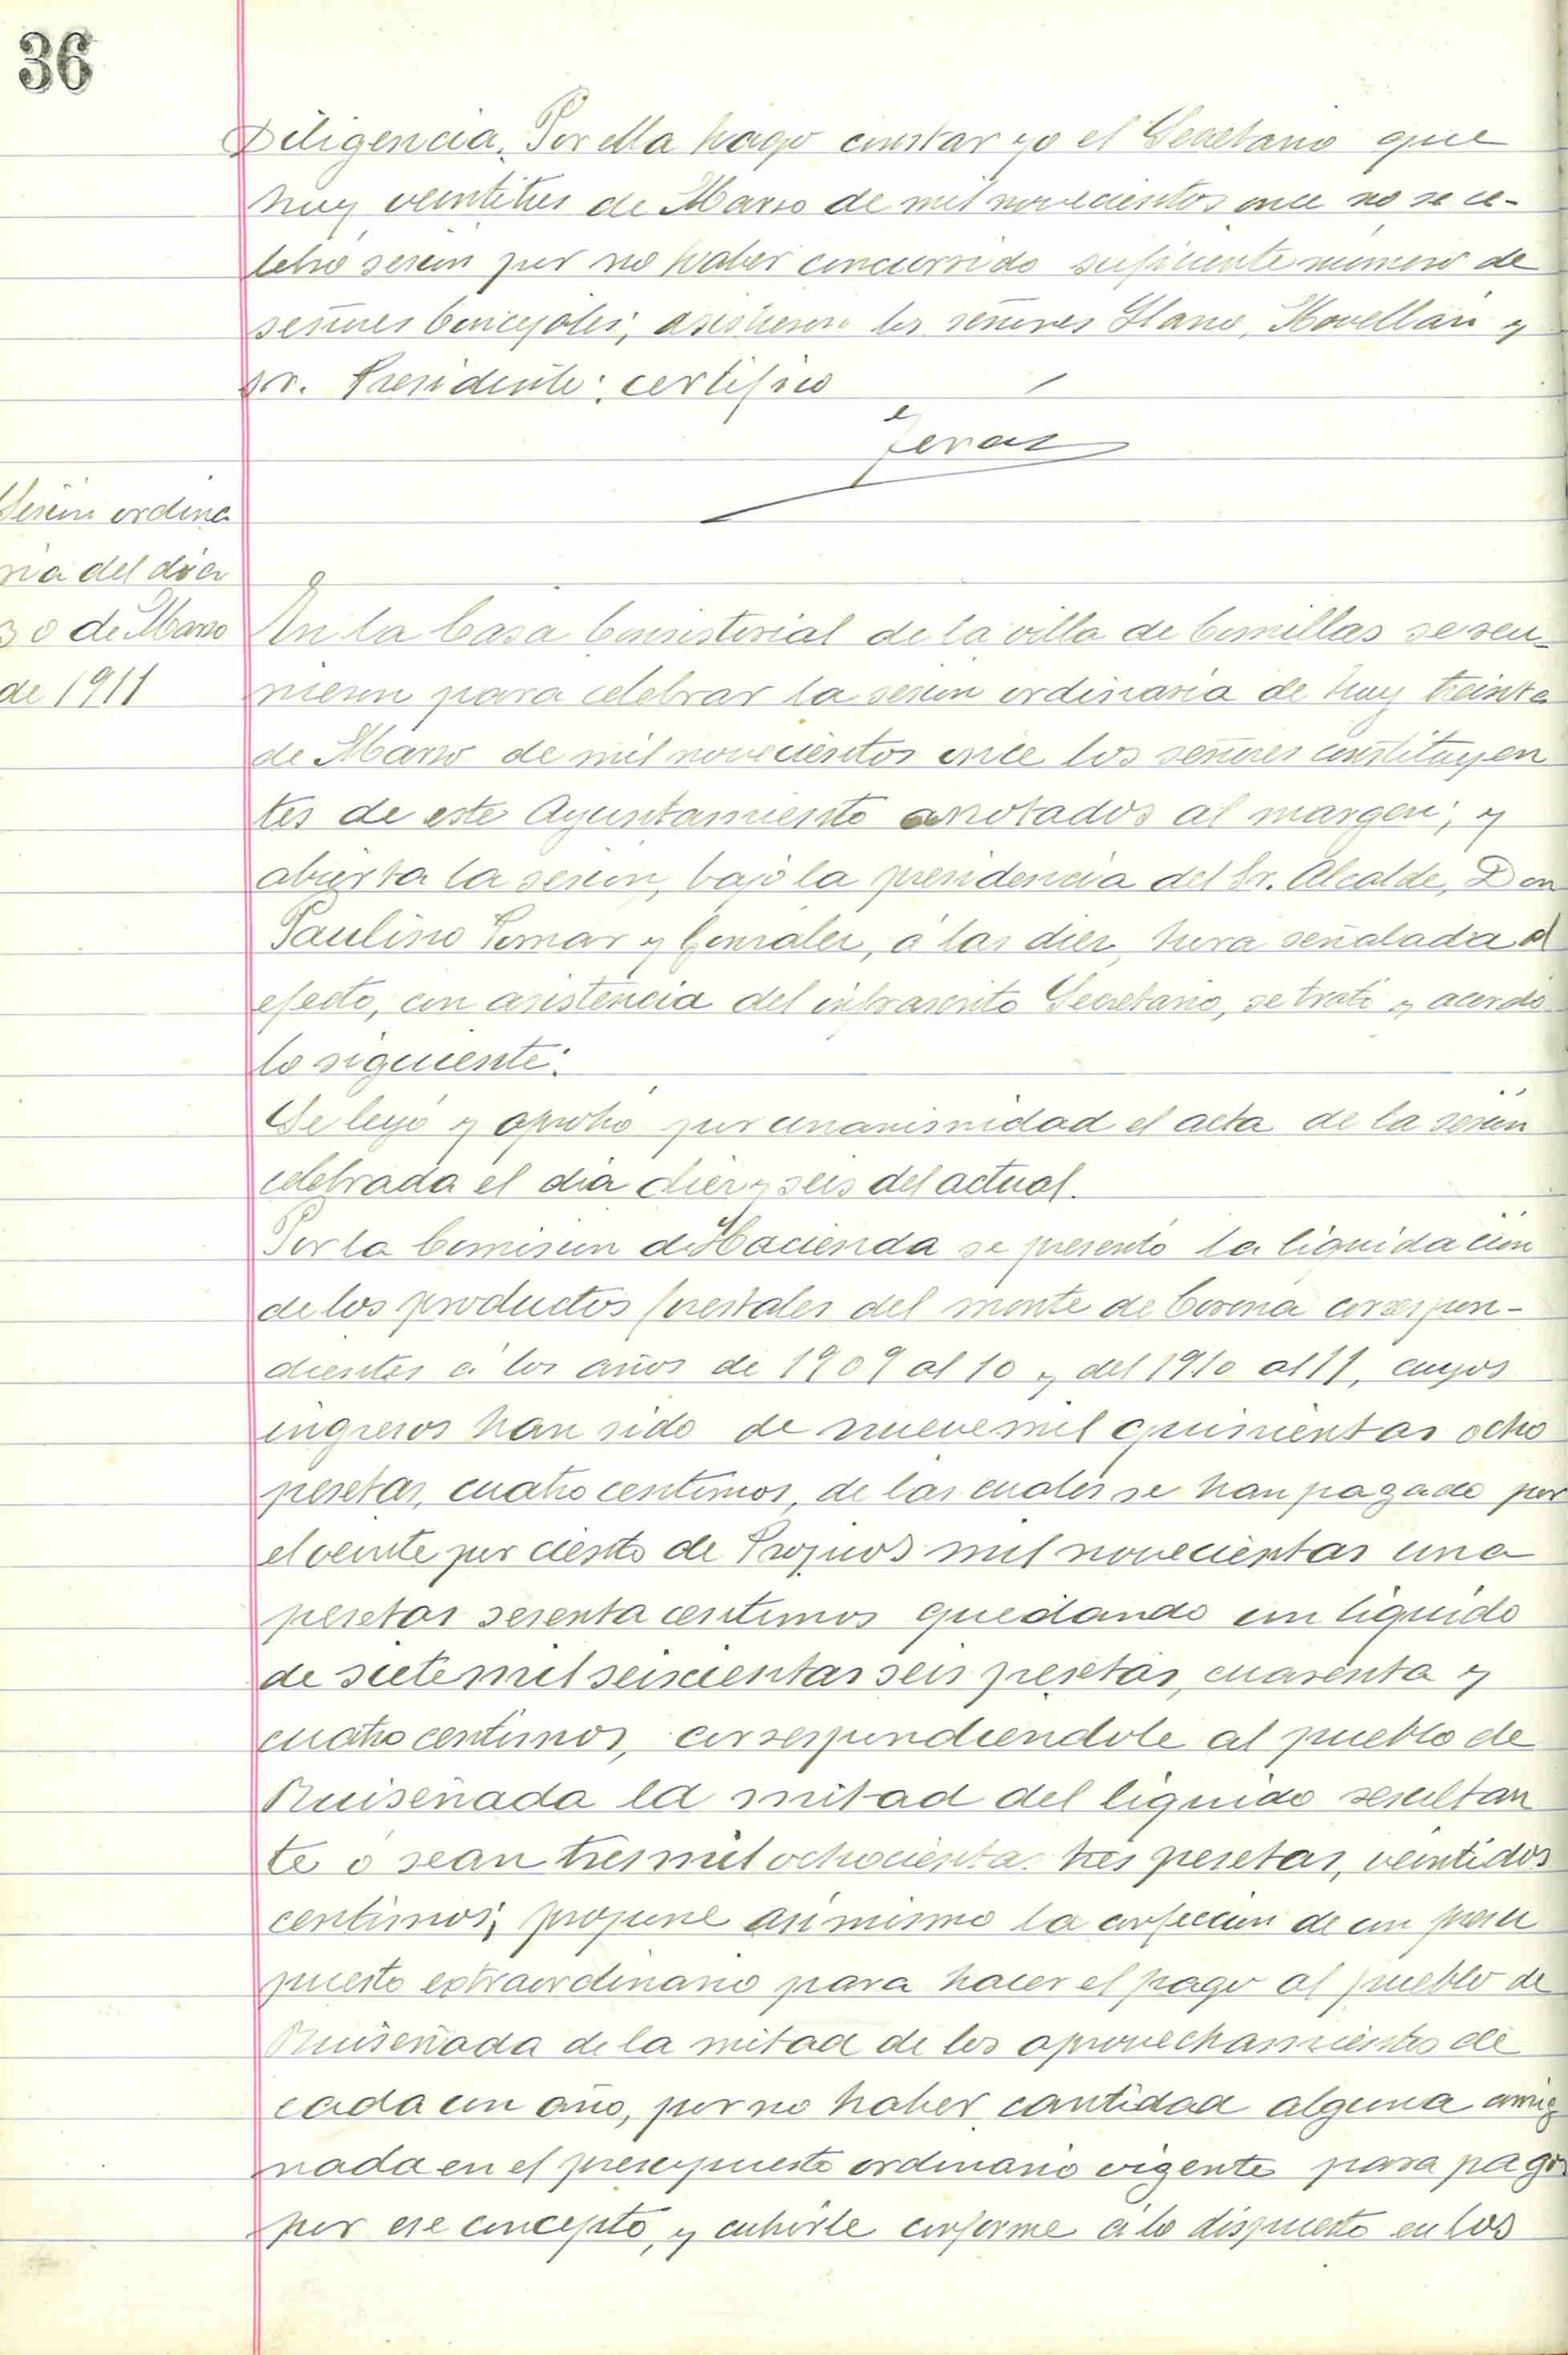 36
Diligencia. Por ella hago constar yo el Secretario que
hoy veintitres de Marzo de mil novecientos once no se ce-
lebró sesión por no haber concurrido suficiente número de
señores Concejales; asistieron los señores Llano, Movellán y
Sr. Presidente; certifico
Sesión ordina
ria del día
30 de Marzo
de 1911
En la Casa Consistorial de la villa de Comillas se reu-
nieron para celebrar la sesión ordinaria de hoy treinta
de Marzo de mil novecientos once los señores constituyen
tes de este Ayuntamiento anotados al margen; y
abierta la sesión, bajo la presidencia del Sr. Alcalde, Don
Paulino y González, á las diez, hora señalada al
efecto, con asistencia del infrascrito Secretario, se trató y acordó
lo siguiente:
Se leyó y aprobó por unanimidad el acta de la sesión
celebrada el día diez y seis del actual.
Por la Comisión de Hacienda se presentó la liquidación
de los productos forestales del monte de Corona correspon-
dientes á los años de 1909 al 10 y del 1910 al 11, cuyos
ingresos han sido de nueve mil quinientas ocho
pesetas, cuatro centimos, de las cuales se han pagado por
el veinte por ciento de Propios mil novecientas una
pesetas sesenta centimos quedando un liquido
de siete mil seiscientas seis pesetas, cuarenta y
cuatro centimos, correspondiendole al pueblo de
Ruiseñada la mitad del liquido resultan
te ó sean tres mil ochocientas tres pesetas, veintidos
centimos; propone asimismo la confección de un presu
puesto extraordinario para hacer el pago al pueblo de
Ruiseñada de la mitad de los aprovechamientos de
cada un año, por no haber cantidad alguna consig
nada en el presupuesto ordinario vigente para pagos
por ese concepto, y cubrirle conforme á lo dispuesto en los